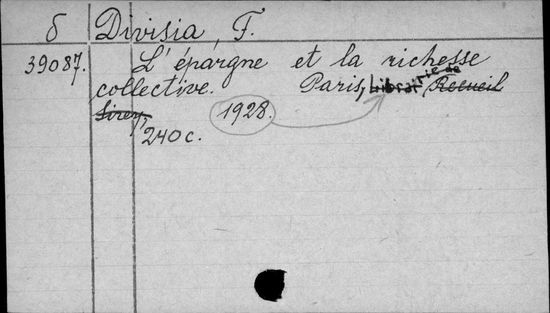 б Divisia, F.
39087. L'épargne et la richesse
collective. Paris, Librairie de Recueil
Sirey, 1928.
240 c.